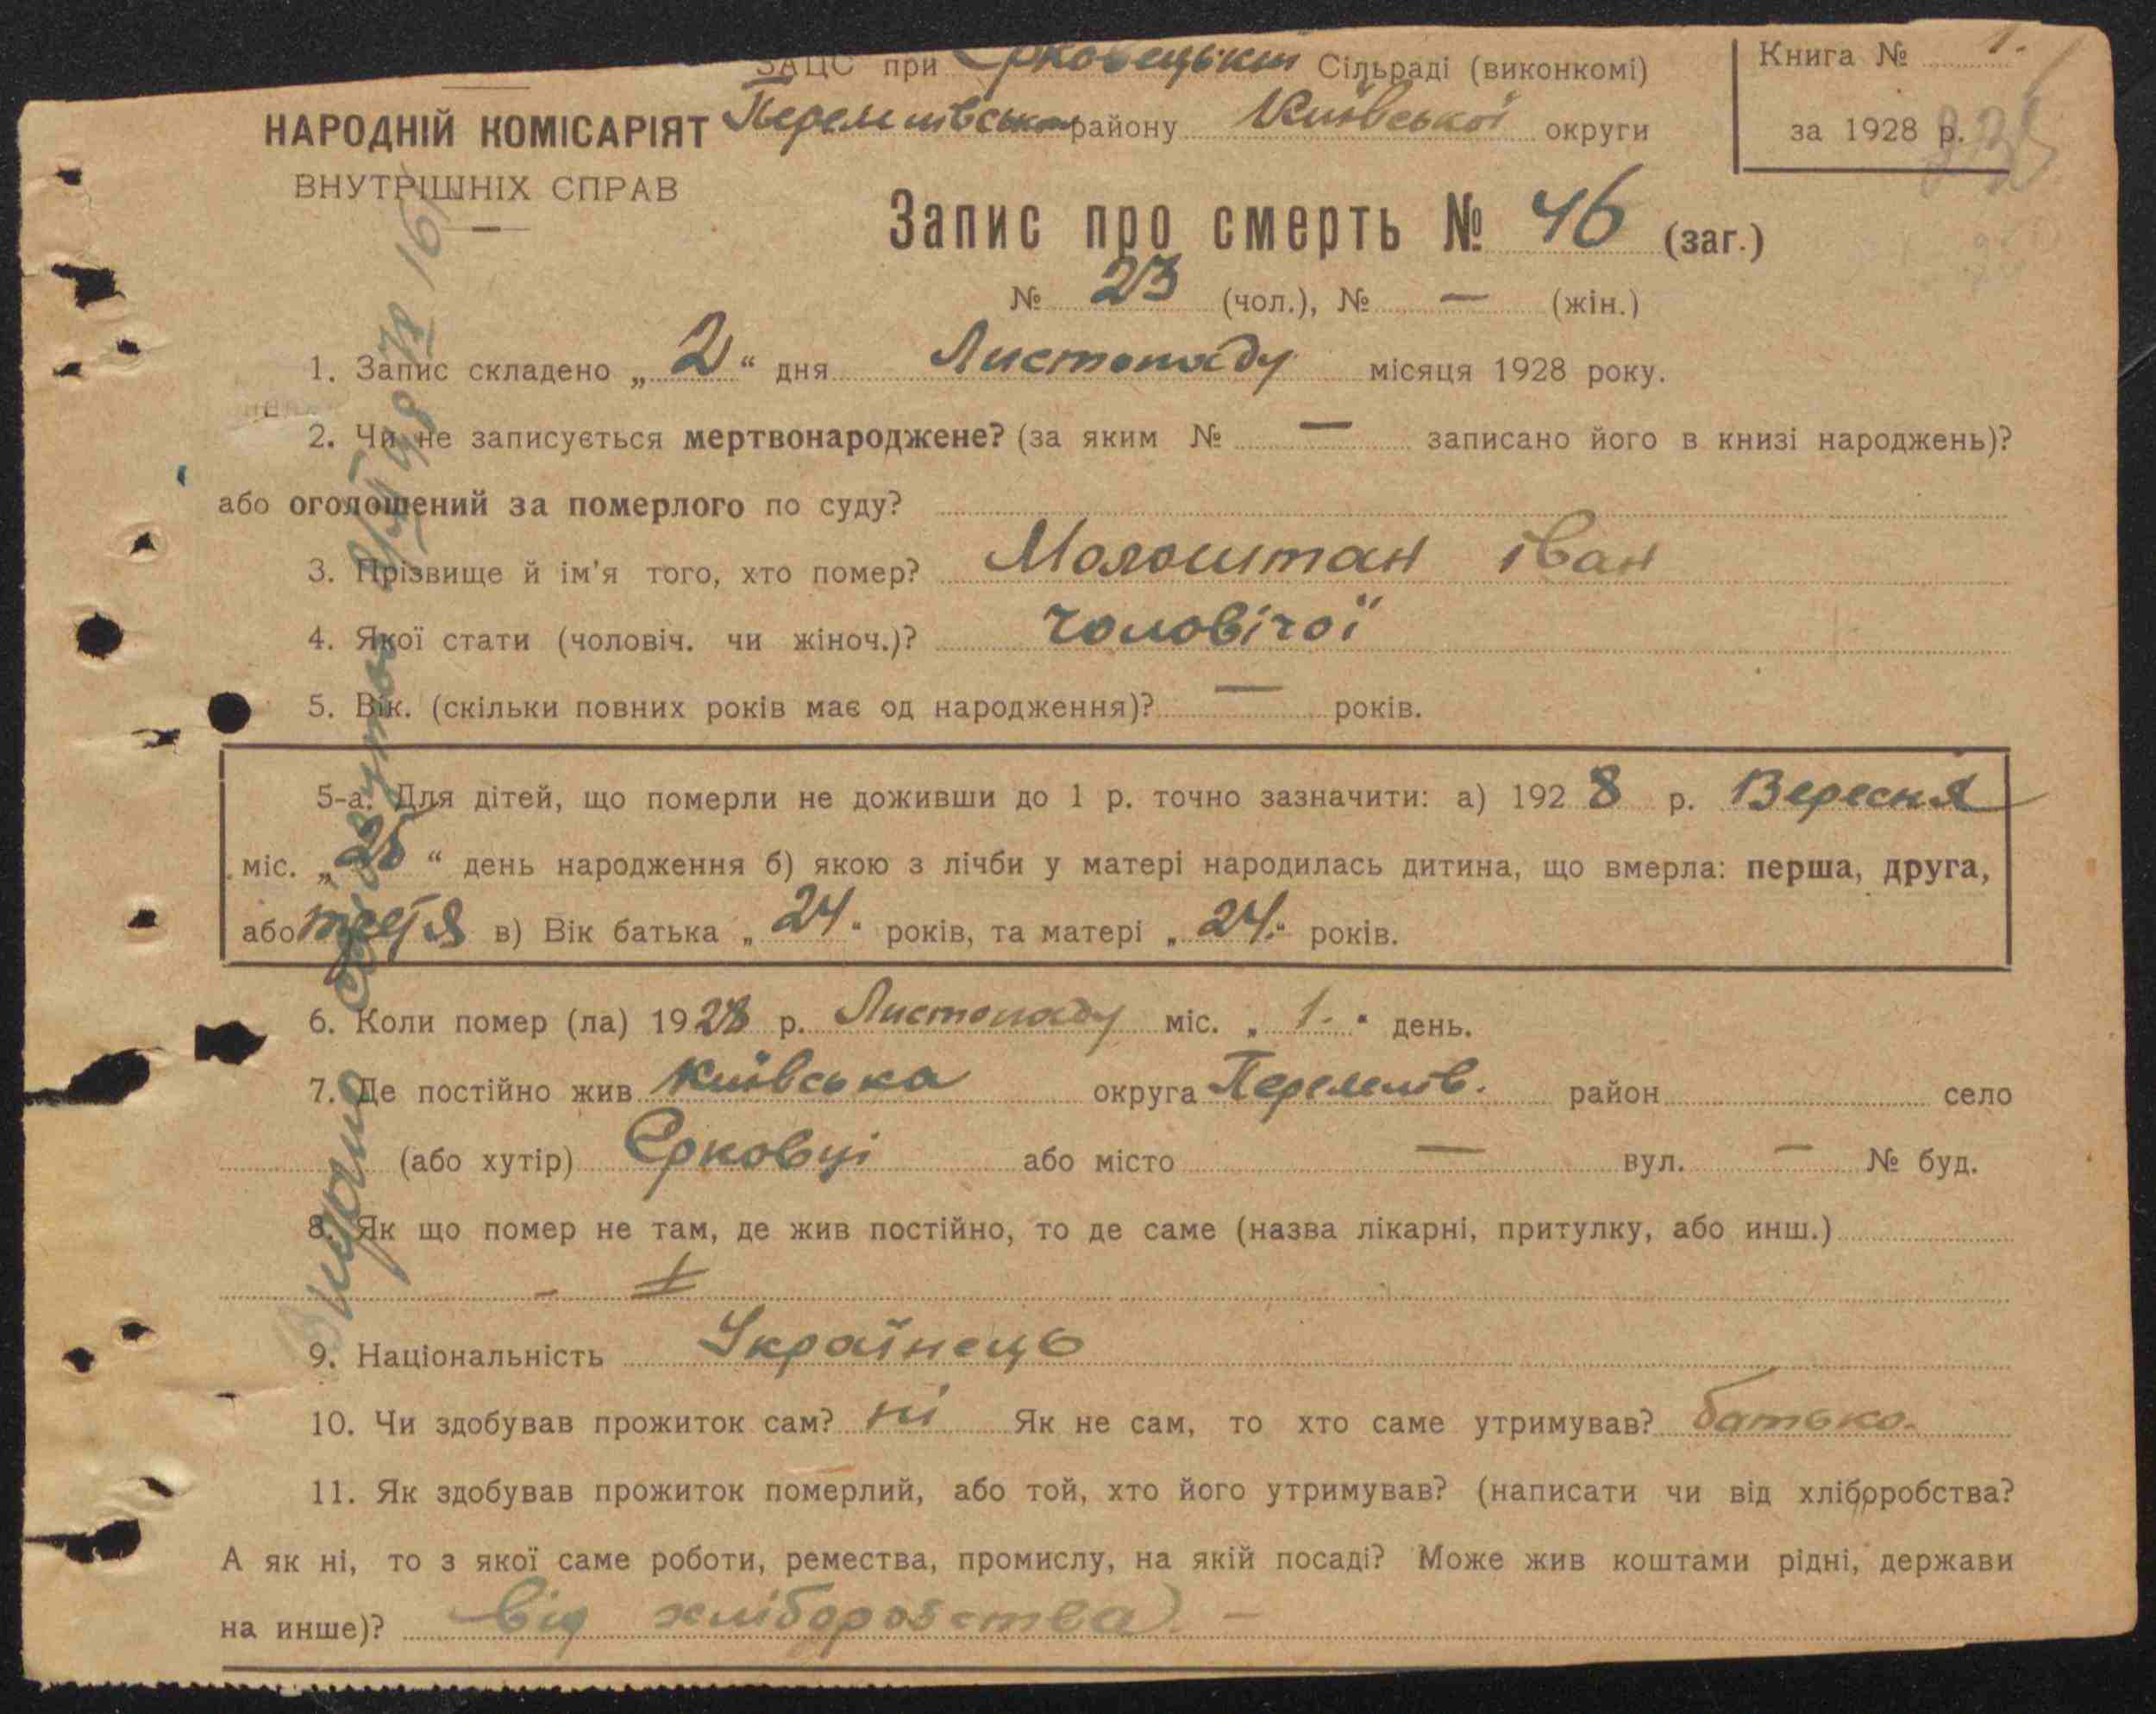 ЗАЦС при Єрковецькій Сільраді (виконкомі)
Книга № 1.
НАРОДНІЙ КОМІСАРІЯТ
району Київської округи
за 1928 р.
ВНУТРІШНІХ СПРАВ
Запис про смерть № 46 (заг.)
№ 23 (чол.), № — (жін.)
1. Запис складено „ 2 “ дня Листопаду місяця 1928 року.
2. Чи не записується мертвонароджене? (за яким № — записано його в книзі народжень)?
або оголошений за померлого по суду?
3. Прізвище й ім'я того, хто помер? Молоштан іван
4. Якої стати (чоловіч. чи жіноч.)? Чоловічої
5. Вік. (скільки повних років має од народження)? — років.
5-а. Для дітей, що померли не доживши до 1 р. точно зазначити: а) 1928 р. Вересня
міс. „ “ день народження б) якою з лічби у матері народилась дитина, що вмерла: перша, друга,
або третя в) Вік батька „ 24 “ років, та матері „ 24. “ років.
6. Коли помер (ла) 1928 р. Листопаду міс. „ 1. “ день.
7. Де постійно жив Київська округа район село
(або хутір) Єрковці або місто — вул. — № буд.
8. Як що помер не там, де жив постійно, то де саме (назва лікарні, притулку, або инш.)
9. Національність Українець
10. Чи здобував прожиток сам? ні Як не сам, то хто саме утримував? батько.
11. Як здобував прожиток померлий, або той, хто його утримував? (написати чи від хліборобства?
А як ні, то з якої саме роботи, ремества, промислу, на якій посаді? Може жив коштами рідні, держави
на инше)? від хліборобства —
Видано